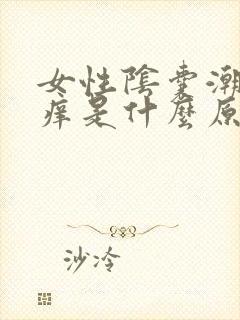 女性陰囊潮
痒是什麼原
沙冷